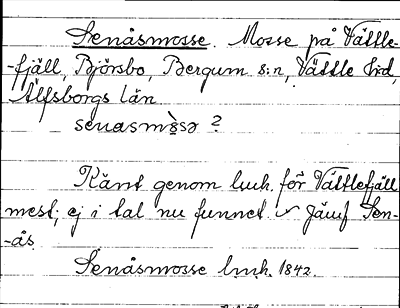 Senåsmosse. Mosse på Vättle-
-fjäll, Björsbo, Bergum s:n, Vättle hd,
Älfsborgs län
senasmòsə ?
Känt genom luh. för Vättlefjäll
mest, ej i tal nu funnet. Jämf Sen-
-ås.
Senåsmosse luh. 1842.